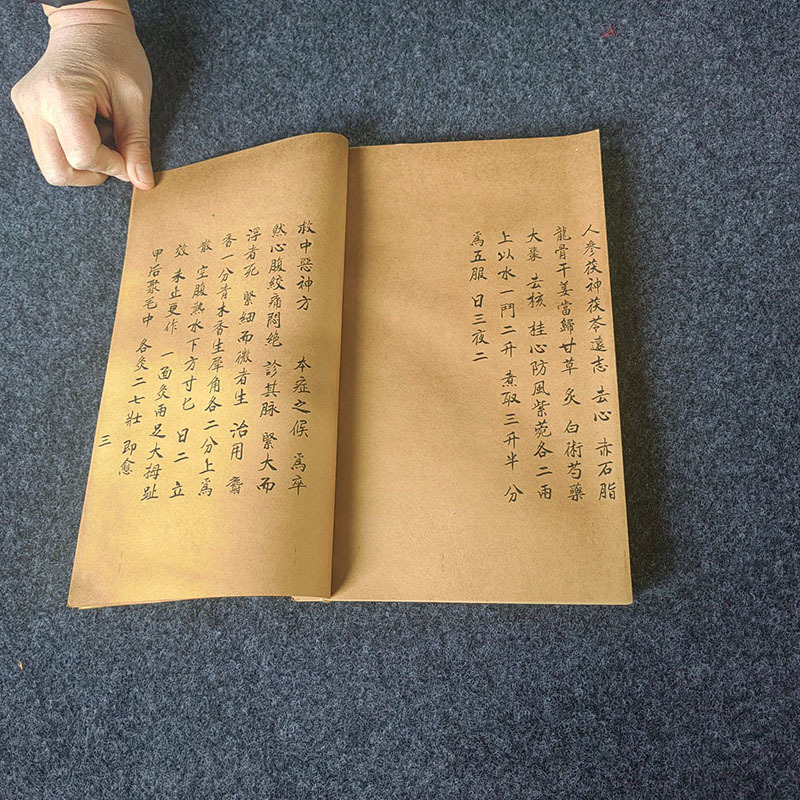 人參茯神茯苓遠志 去心 赤石脂
龍骨干姜當歸甘草 炙 白術芍藥
大棗 去核 桂心防風紫菀各二兩
上以水一鬥二升 煮取三升半 分
爲五服 日三夜二
救中惡神方 本症之候 爲卒
然心腹絞痛悶絕 診其脉 緊大而
浮者死 緊細而微者生 治用 麝
香一分青木香生犀角各二分上爲
散 空腹熱水下方寸匕 日二 立
效 未止更作 一面灸兩足大拇趾
甲后聚毛中 各灸二七壯 即愈
三